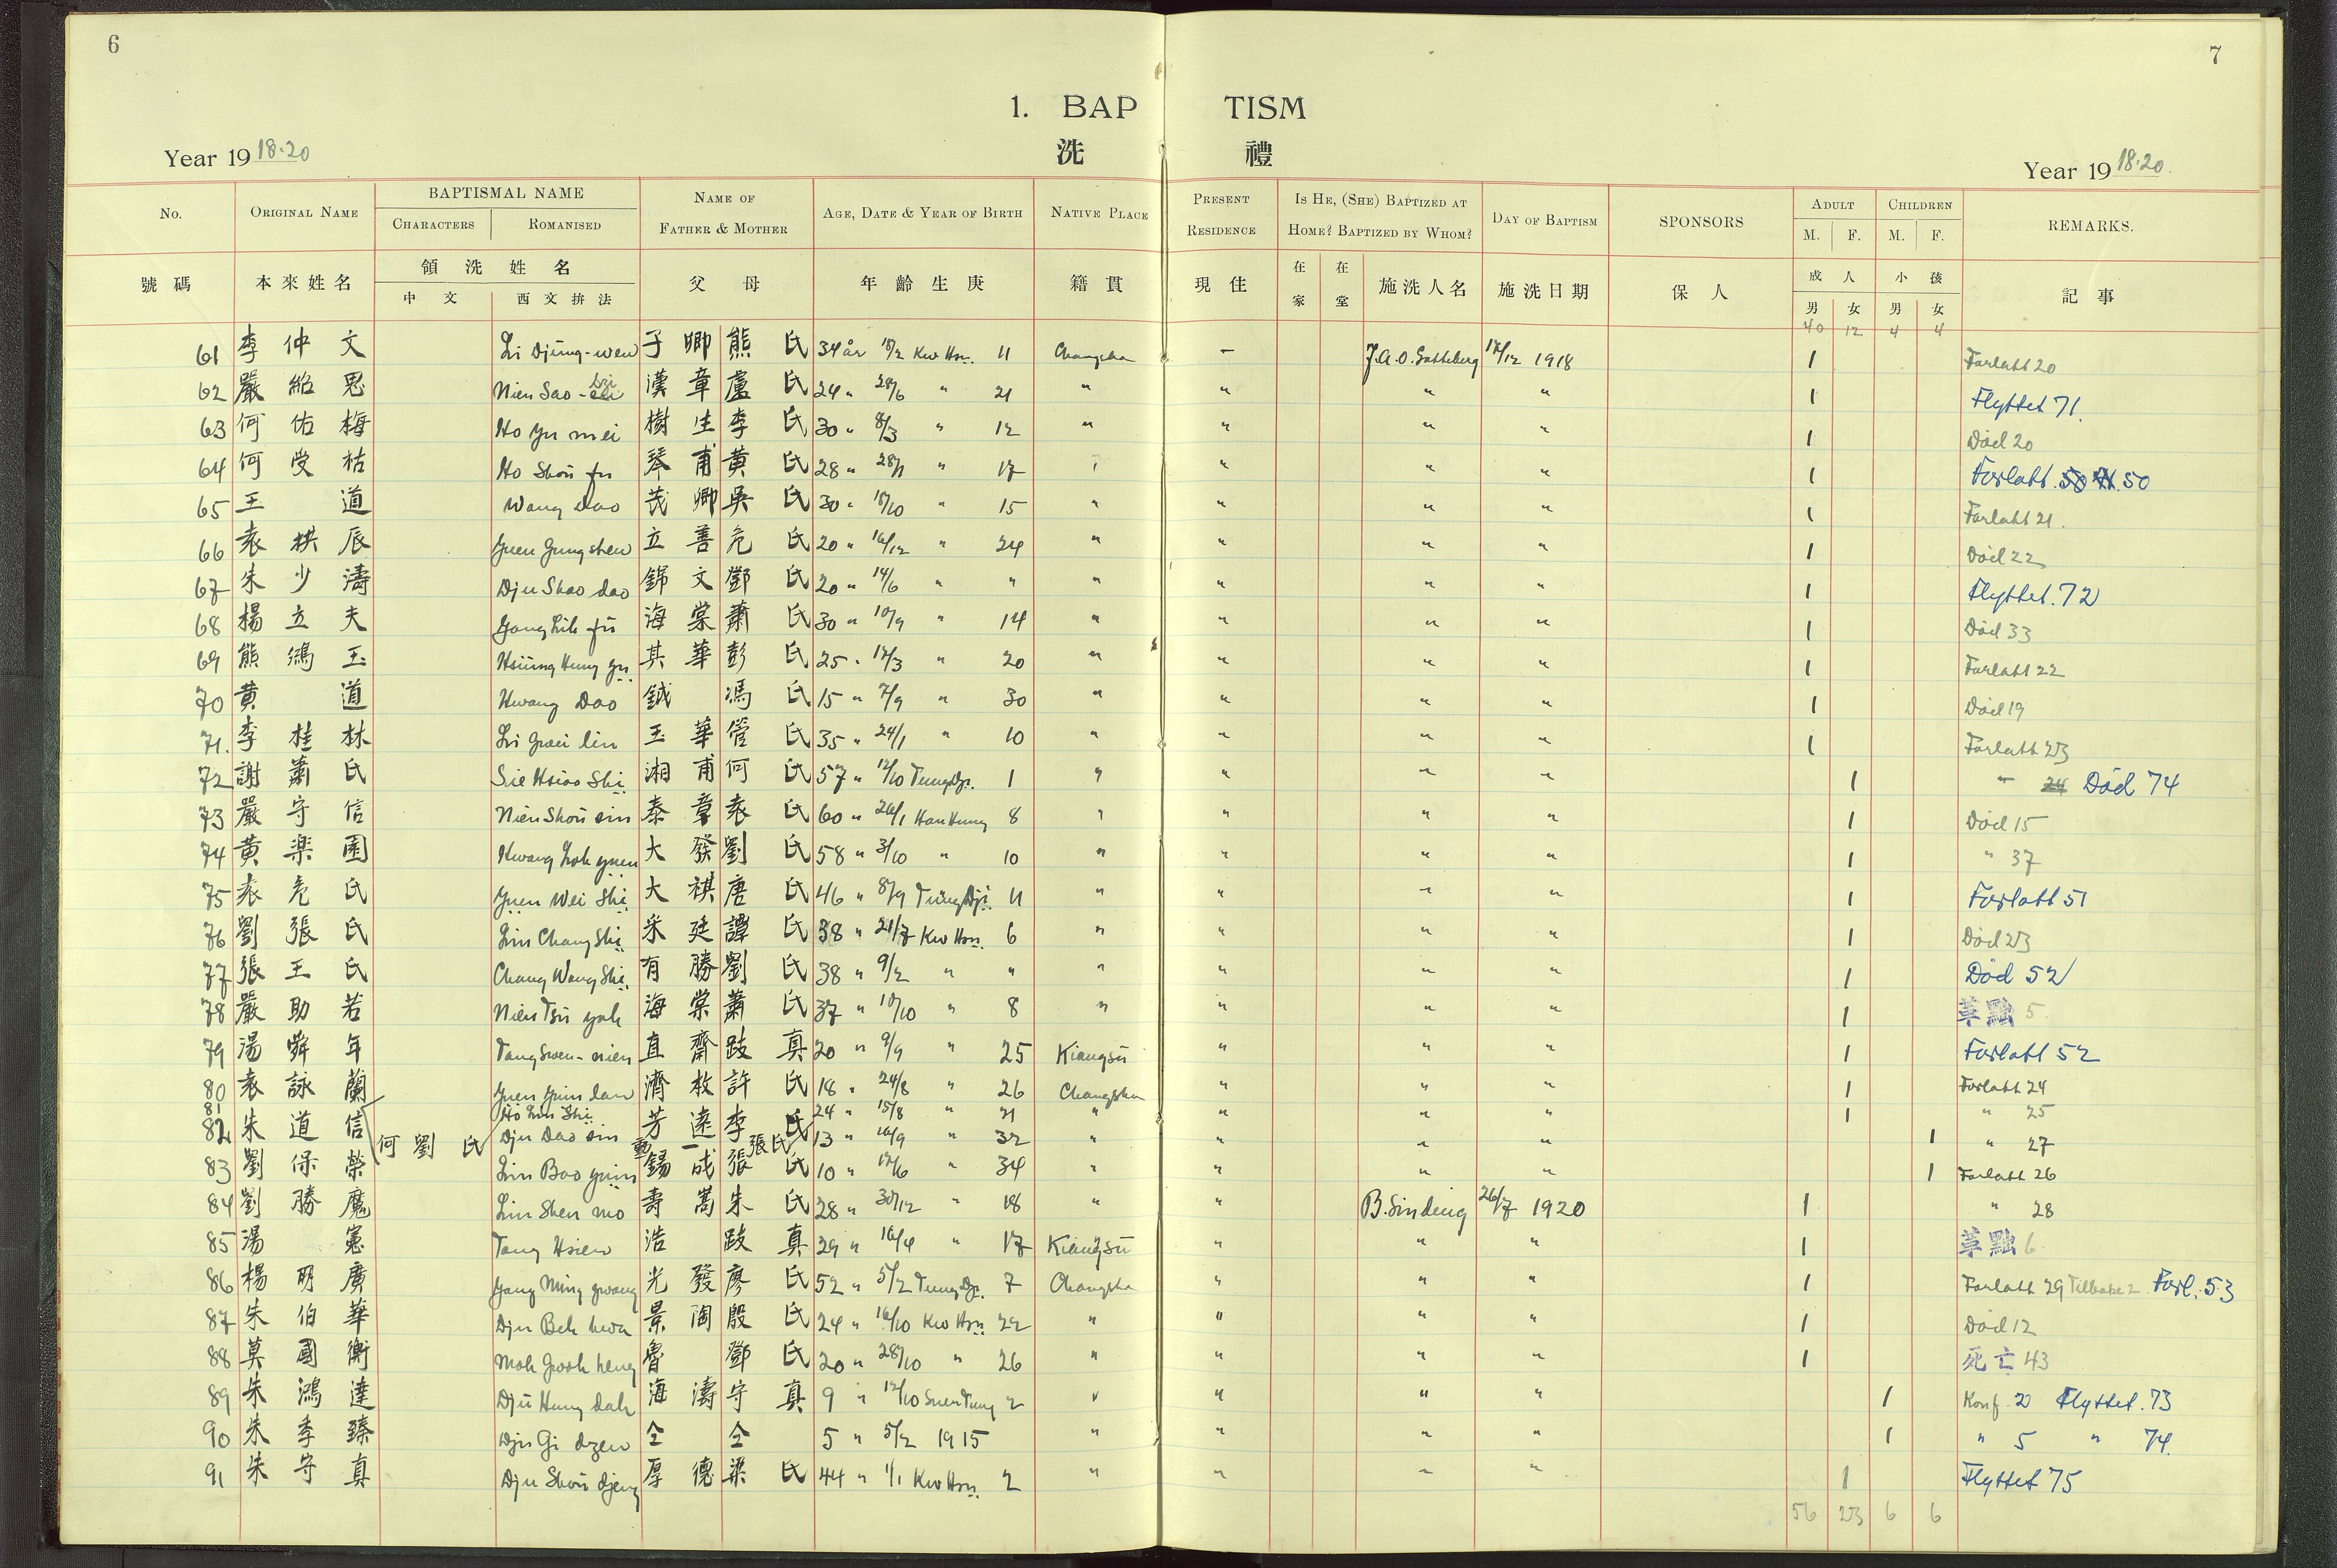 6
7
1. BAP TISM
洗 禮
Year 19 18-20
Year 19 18-20.
No. ORIGINAL NAME BAPTISMAL NAME CHARACTERS ROMANISED NAME OF FATHER & MOTHER AGE, DATE & YEAR OF BIRTH NATIVE PLACE PRESENT RESIDENCE IS HE, (SHE) BAPTIZED AT HOME? BAPTIZED BY WHOM? DAY OF BAPTISM SPONSORS ADULT M. F. CHILDREN M. F. REMARKS.
號碼 本來姓名 領洗姓名 中文 西文拚法 父母 年齡生庚 籍貫 現住 在家 在堂 施洗人名 施洗日期 保人 成人 男 女 小孩 男 女 記事
40 12 4 4
61 李仲文 Li Djung-wen 子卿 熊氏 34 år 18/2 Kw Hsu. 11 Changsha — J.A.O. Gotteberg 12/12 1918 1 Forlatt 20
62 嚴紹思 Nien Sao- 漢章 盧氏 24 " 28/6 " 21 " " " " 1 Flyttet 71.
63 何佑梅 Ho Yu mei 樹生 李氏 30 " 8/3 " 12 " " " " 1 Död 20
64 何受枯 Ho Shou fu 琴甫 黄氏 28 " " 17 " " " 1 Forlatt 50
65 王道 Wang Dao 茂卿 吳氏 30 " 18/10 " 15 " " " " 1 Forlatt 21.
66 袁拱辰 Yuen Gung shen 立善 危氏 20 " 16/12 " 24 " " " " 1 Död 22
67 朱少濤 Dju Shao dao 錦文 鄧氏 20 " 14/6 " " " " " " 1 Flyttet. 72
68 楊立夫 Yang Lih fu 海棠 蕭氏 30 " 10/9 " 14 " " " " 1 Död 33
69 熊鴻玉 Hsiung Hung yu 其華 彭氏 25 " 12/3 " 20 " " " " 1 Forlatt 22
70 黄道 Hwang Dao 鉞 馮氏 15 " 7/9 " 30 " " " " 1 Död 19
71. 李桂林 Li Gwei lin 玉華 管氏 35 " 24/1 " 10 " " " " 1 Forlatt 23
72 謝蕭氏 Sie Hsiao Shi 湘甫 何氏 57 " 12/10 Tung Dji. 1 " " " " 1 " 24 Död 74
73 嚴守信 Nien Shou sin 泰章 袁氏 60 " 26/1 Han Hung 8 " " " " 1 Död 15
74 黄楽園 Hwang Loh yuen 大發 劉氏 58 " 3/10 " 10 " " " " 1 " 37
75 袁危氏 Yuen Wei Shi 大祺 唐氏 46 " 8/9 Tung Dji. 11 " " " " 1 Forlatt 51
76 劉張氏 Liu Chang Shi 采廷 譚氏 38 " 21/7 Kw Hsu. 6 " " " " 1 Död 23
77 張王氏 Chang Wang Shi. 有勝 劉氏 38 " 9/2 " " " " " " 1 Död 52
78 嚴助若 Nien Tsu yoh 海棠 蕭氏 37 " 10/10 " 8 " " " " 1 革黜 5
79 湯舜年 Tang Swen-nien 直齋 跂真 20 " 9/9 " 25 Kiangsu " " " 1 Forlatt 52
80 袁詠蘭 Yuen Yuin lan 濟枚 許氏 18 " 24/8 " 26 Changsha " " " 1 Forlatt 24
81 何劉氏 Ho Liu Shi 勤一 張氏 24 " 15/8 " 21 " " " " 1 " 25
82 朱道信 Dju Dao sin 芳遠 李氏 13 " 16/9 " 32 " " " " 1 " 27
83 劉保榮 Liu Bao yuin 錫成 張氏 10 " 12/6 " 34 " " " " 1 Forlatt 26
84 劉勝魔 Liu Shen mo 壽嵩 朱氏 28 " 30/12 " 18 " " B. Sindeng 26/7 1920 1 " 28
85 湯憲 Tang Hsien 浩 跂真 29 " 16/4 " 17 Kiangsu " " " 1 革黜 6
86 楊明廣 Yang Ming gwang 光發 廖氏 52 " 5/2 Tung Dji. 7 Changsha " " " 1 Forlatt 29 Tilbake 2 Forl. 53
87 朱伯華 Dju Beh hwa 景陶 殷氏 24 " 16/10 Kw Hsu 22 " " " " 1 Död 12
88 莫國衡 Moh Gwoh heng 魯 鄧氏 20 " 28/10 " 26 " " " " 1 死亡 43
89 朱鴻達 Dju Hung dah 海濤 守真 9 " 12/10 Suen Tung 2 " " " " 1 Konf. 2 Flyttet. 73
90 朱季臻 Dju Gi dzen 仝 仝 5 " 5/2 1915 " " " " 1 " 5 " 74.
91 朱守真 Dju Shou djeng 厚德 梁氏 44 " 1/1 Kw Hsu. 2 " " " " 1 Flyttet 75
56 23 6 6